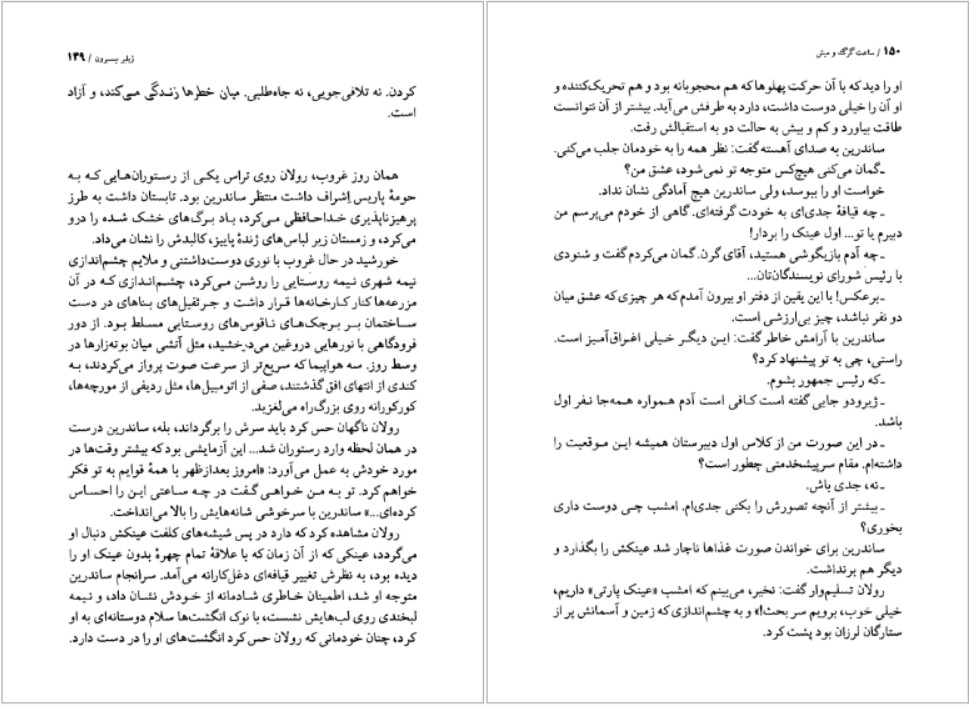 ژیلبر سسبرون / ۱۴۹
کردن. نه تلافی‌جویی، نه جاه‌طلبی. میان خطرها زندگی می‌کند، و آزاد
است.
همان روز غروب، رولان روی تراس یکی از رستوران‌هایی که به
حومهٔ پاریس اِشراف داشت منتظر ساندرین بود. تابستان داشت به طرز
پرهیزناپذیری خداحافظی می‌کرد، باد برگ‌های خشک شده را درو
می‌کرد، و زمستان زیر لباس‌های ژندهٔ پاییز، کالبدش را نشان می‌داد.
خورشید در حال غروب با نوری دوست‌داشتنی و ملایم چشم‌اندازی
نیمه شهری نیمه روستایی را روشن می‌کرد، چشم‌اندازی که در آن
مزرعه‌ها کنار کارخانه‌ها قرار داشت و جرثقیل‌های بناهای در دست
ساختمان بر برجک‌های ناقوس‌های روستایی مسلط بود. از دور
فرودگاهی با نورهایی دروغین می‌درخشید، مثل آتشی میان بوته‌زارها در
وسط روز. سه هواپیما که سریع‌تر از سرعت صوت پرواز می‌کردند، به
کندی از انتهای افق گذشتند، صفی از اتومبیل‌ها، مثل ردیفی از مورچه‌ها،
کورکورانه روی بزرگ‌راه می‌لغزید.
رولان ناگهان حس کرد باید سرش را برگرداند، بله، ساندرین درست
در همان لحظه وارد رستوران شد... این آزمایشی بود که بیشتر وقت‌ها در
مورد خودش به عمل می‌آورد: «امروز بعدازظهر با همهٔ قوایم به تو فکر
خواهم کرد. تو به من خواهی گفت در چه ساعتی این را احساس
کرده‌ای...» ساندرین با سرخوشی شانه‌هایش را بالا می‌انداخت.
رولان مشاهده کرد که دارد در پس شیشه‌های کلفت عینکش دنبال او
می‌گردد، عینکی که از آن زمان که با علاقهٔ تمام چهرهٔ بدون عینک او را
دیده بود، به نظرش تغییر قیافه‌ای دغل‌کارانه می‌آمد. سرانجام ساندرین
متوجه او شد، اطمینان خاطری شادمانه از خودش نشان داد، و نیمه
لبخندی روی لب‌هایش نشست، با نوک انگشت‌ها سلام دوستانه‌ای به او
کرد، چنان خودمانی که رولان حس کرد انگشت‌های او را در دست دارد.
۱۵۰ / ساعت گرگ و میش
او را دید که با آن حرکت پهلوها که هم محجوبانه بود و هم تحریک‌کننده و
او آن را خیلی دوست داشت، دارد به طرفش می‌آید. بیشتر از آن نتوانست
طاقت بیاورد و کم و بیش به حالت دو به استقبالش رفت.
ساندرین به صدای آهسته گفت: نظر همه را به خودمان جلب می‌کنی.
ـ گمان می‌کنی هیچ‌کس متوجه تو نمی‌شود، عشق من؟
خواست او را ببوسد، ولی ساندرین هیچ آمادگی نشان نداد.
ـ چه قیافهٔ جدی‌ای به خودت گرفته‌ای. گاهی از خودم می‌پرسم من
دبیرم یا تو... اول عینک را بردار!
ـ چه آدم بازیگوشی هستید، آقای گرن. گمان می‌کردم گفت و شنودی
با رئیس شورای نویسندگان‌تان...
ـ برعکس! با این یقین از دفتر او بیرون آمدم که هر چیزی که عشق میان
دو نفر نباشد، چیز بی‌ارزشی است.
ساندرین با آرامش خاطر گفت: این دیگر خیلی اغراق‌آمیز است.
راستی، چی به تو پیشنهاد کرد؟
ـ که رئیس جمهور بشوم.
ـ ژیرودو جایی گفته است کافی است آدم همواره همه‌جا نفر اول
باشد.
ـ در این صورت من از کلاس اول دبیرستان همیشه این موقعیت را
داشته‌ام. مقام سرپیشخدمتی چطور است؟
ـ نه، جدی باش.
ـ بیشتر از آنچه تصورش را بکنی جدی‌ام. امشب چی دوست داری
بخوری؟
ساندرین برای خواندن صورت غذاها ناچار شد عینکش را بگذارد و
دیگر هم برنداشت.
رولان تسلیم‌وار گفت: نخیر، می‌بینم که امشب «عینک پارتی» داریم،
خیلی خوب، برویم سر بحث!» و به چشم‌اندازی که زمین و آسمانش پر از
ستارگان لرزان بود پشت کرد.